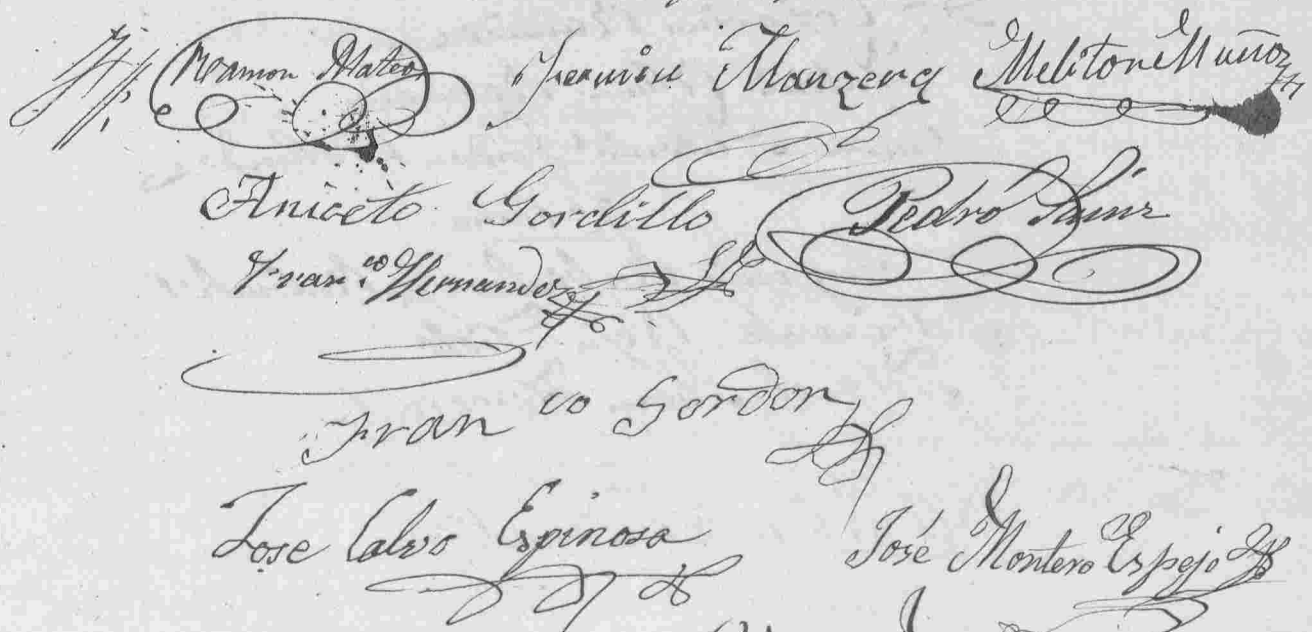 Ramon Mateo Fermin Manzera Meliton Muñoz
Aniceto Gordillo Pedro Sainz
Fran.co Hernandez
Fran co Gordon
Jose Calvo Espinosa José Montero Espejo